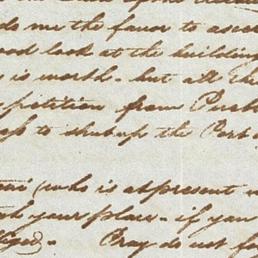 do me the favor to asce
good look at the building
is worth - but all the
petition from Purb
to shut up the Port
(who is at present
your place - if you
Pray do not fa